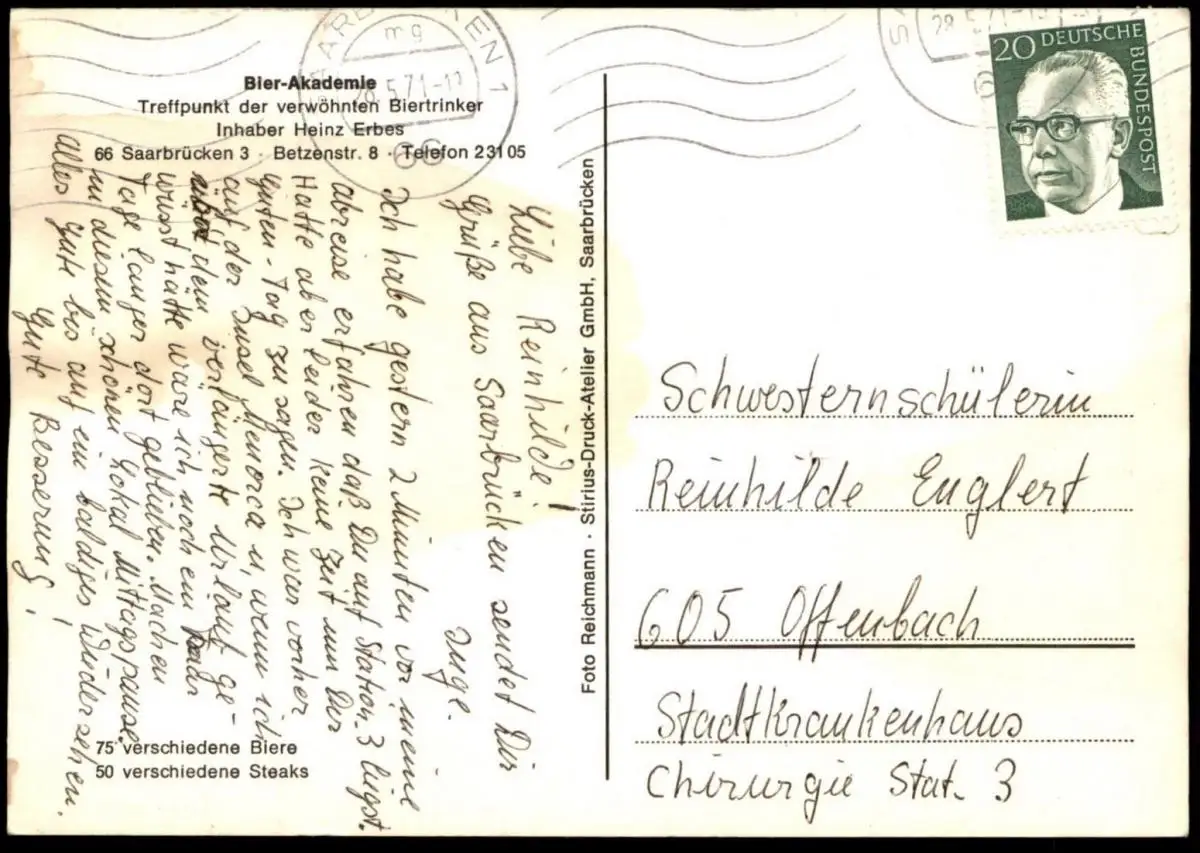 Bier-Akademie
Treffpunkt der verwöhnten Biertrinker
Inhaber Heinz Erbes
66 Saarbrücken 3 · Betzenstr. 8 · Telefon 23105
Liebe Reinhilde!
Grüße aus Saarbrücken sendet Dir
Inge.
Ich habe gestern 2 Minuten vor meine
Abreise erfahren daß Du auf Station 3 liegst.
Hatte aber leider keine Zeit um Dir
Guten-Tag zu sagen. Ich war vorher
auf der Insel Menorca u, wenn ich
dem verlängerte Urlaub ge-
wüsst hätte wäre ich noch ein paar
Tage länger dort geblieben. Machen
in diesem schönen Lokal Mittagspause.
Alles gute bis auf ein baldiges Wiedersehen.
Gute Besserung!
75 verschiedene Biere
50 verschiedene Steaks
Foto Reichmann · Stirius-Druck-Atelier GmbH, Saarbrücken
mg
28.5.71-1
66
28.5.71-1
20 DEUTSCHE BUNDESPOST
Schwesternschülerin
Reinhilde Englert
605 Offenbach
Stadtkrankenhaus
Chirurgie Stat. 3